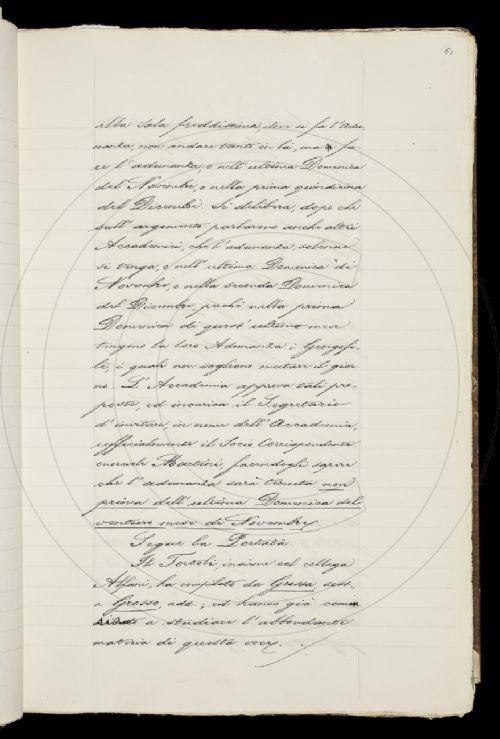 61
alla Sala freddissima, dove si fa l'Adu-
nanza, non andare tanto in là, ma fa-
re l'adunanza, o nell'ultima Domenica
del Novembre, o nella prima quindicina
del Dicembre. Si delibera, dopo che
sull'argomento parlarono anche altri
Accademici, che l'adunanza solenne
si tenga, o nell'ultima Domenica di
Novembre, o nella seconda Domenica
del Dicembre; poiché nella prima
Domenica di quest'ultimo mese
tengono la loro Adunanza i Georgofi-
li, i quali non vogliono mutare il gior-
no. L'Accademia approva tali pro-
poste, ed incarica il Segretario
d'invitare, in nome dell'Accademia,
ufficialmente il Socio Corrispondente
generale Mariani, facendogli sapere
che l'adunanza sarà tenuta non
prima dell'ultima Domenica del
venturo mese di Novembre.
Segue la Portata
Il Tortoli, insieme col collega
Alfani, ha compilato da Grossa, sost.
a Grosso, add.; ed hanno già comin
a studiare l'abbondante
materia di questa voce.